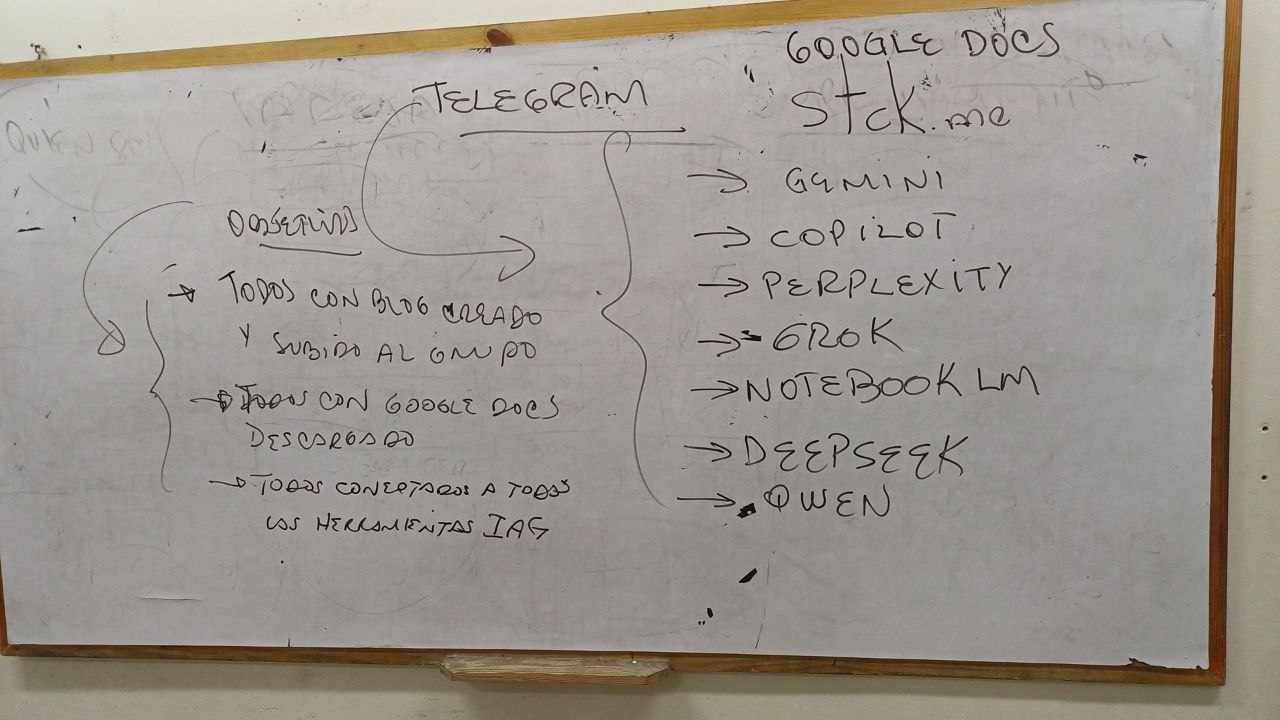 TELEGRAM
OBJETIVOS
TODOS CON BLOG CREADO
Y SUBIDO AL GRUPO
TODOS CON GOOGLE DOCS
DESCARGADO
TODOS CONECTADOS A TODOS
LAS HERRAMIENTAS IAG
GOOGLE DOCS
Stck.me
→ GEMINI
→ COPILOT
→ PERPLEXITY
→ GROK
→ NOTEBOOK LM
→ DEEPSEEK
→ QWEN